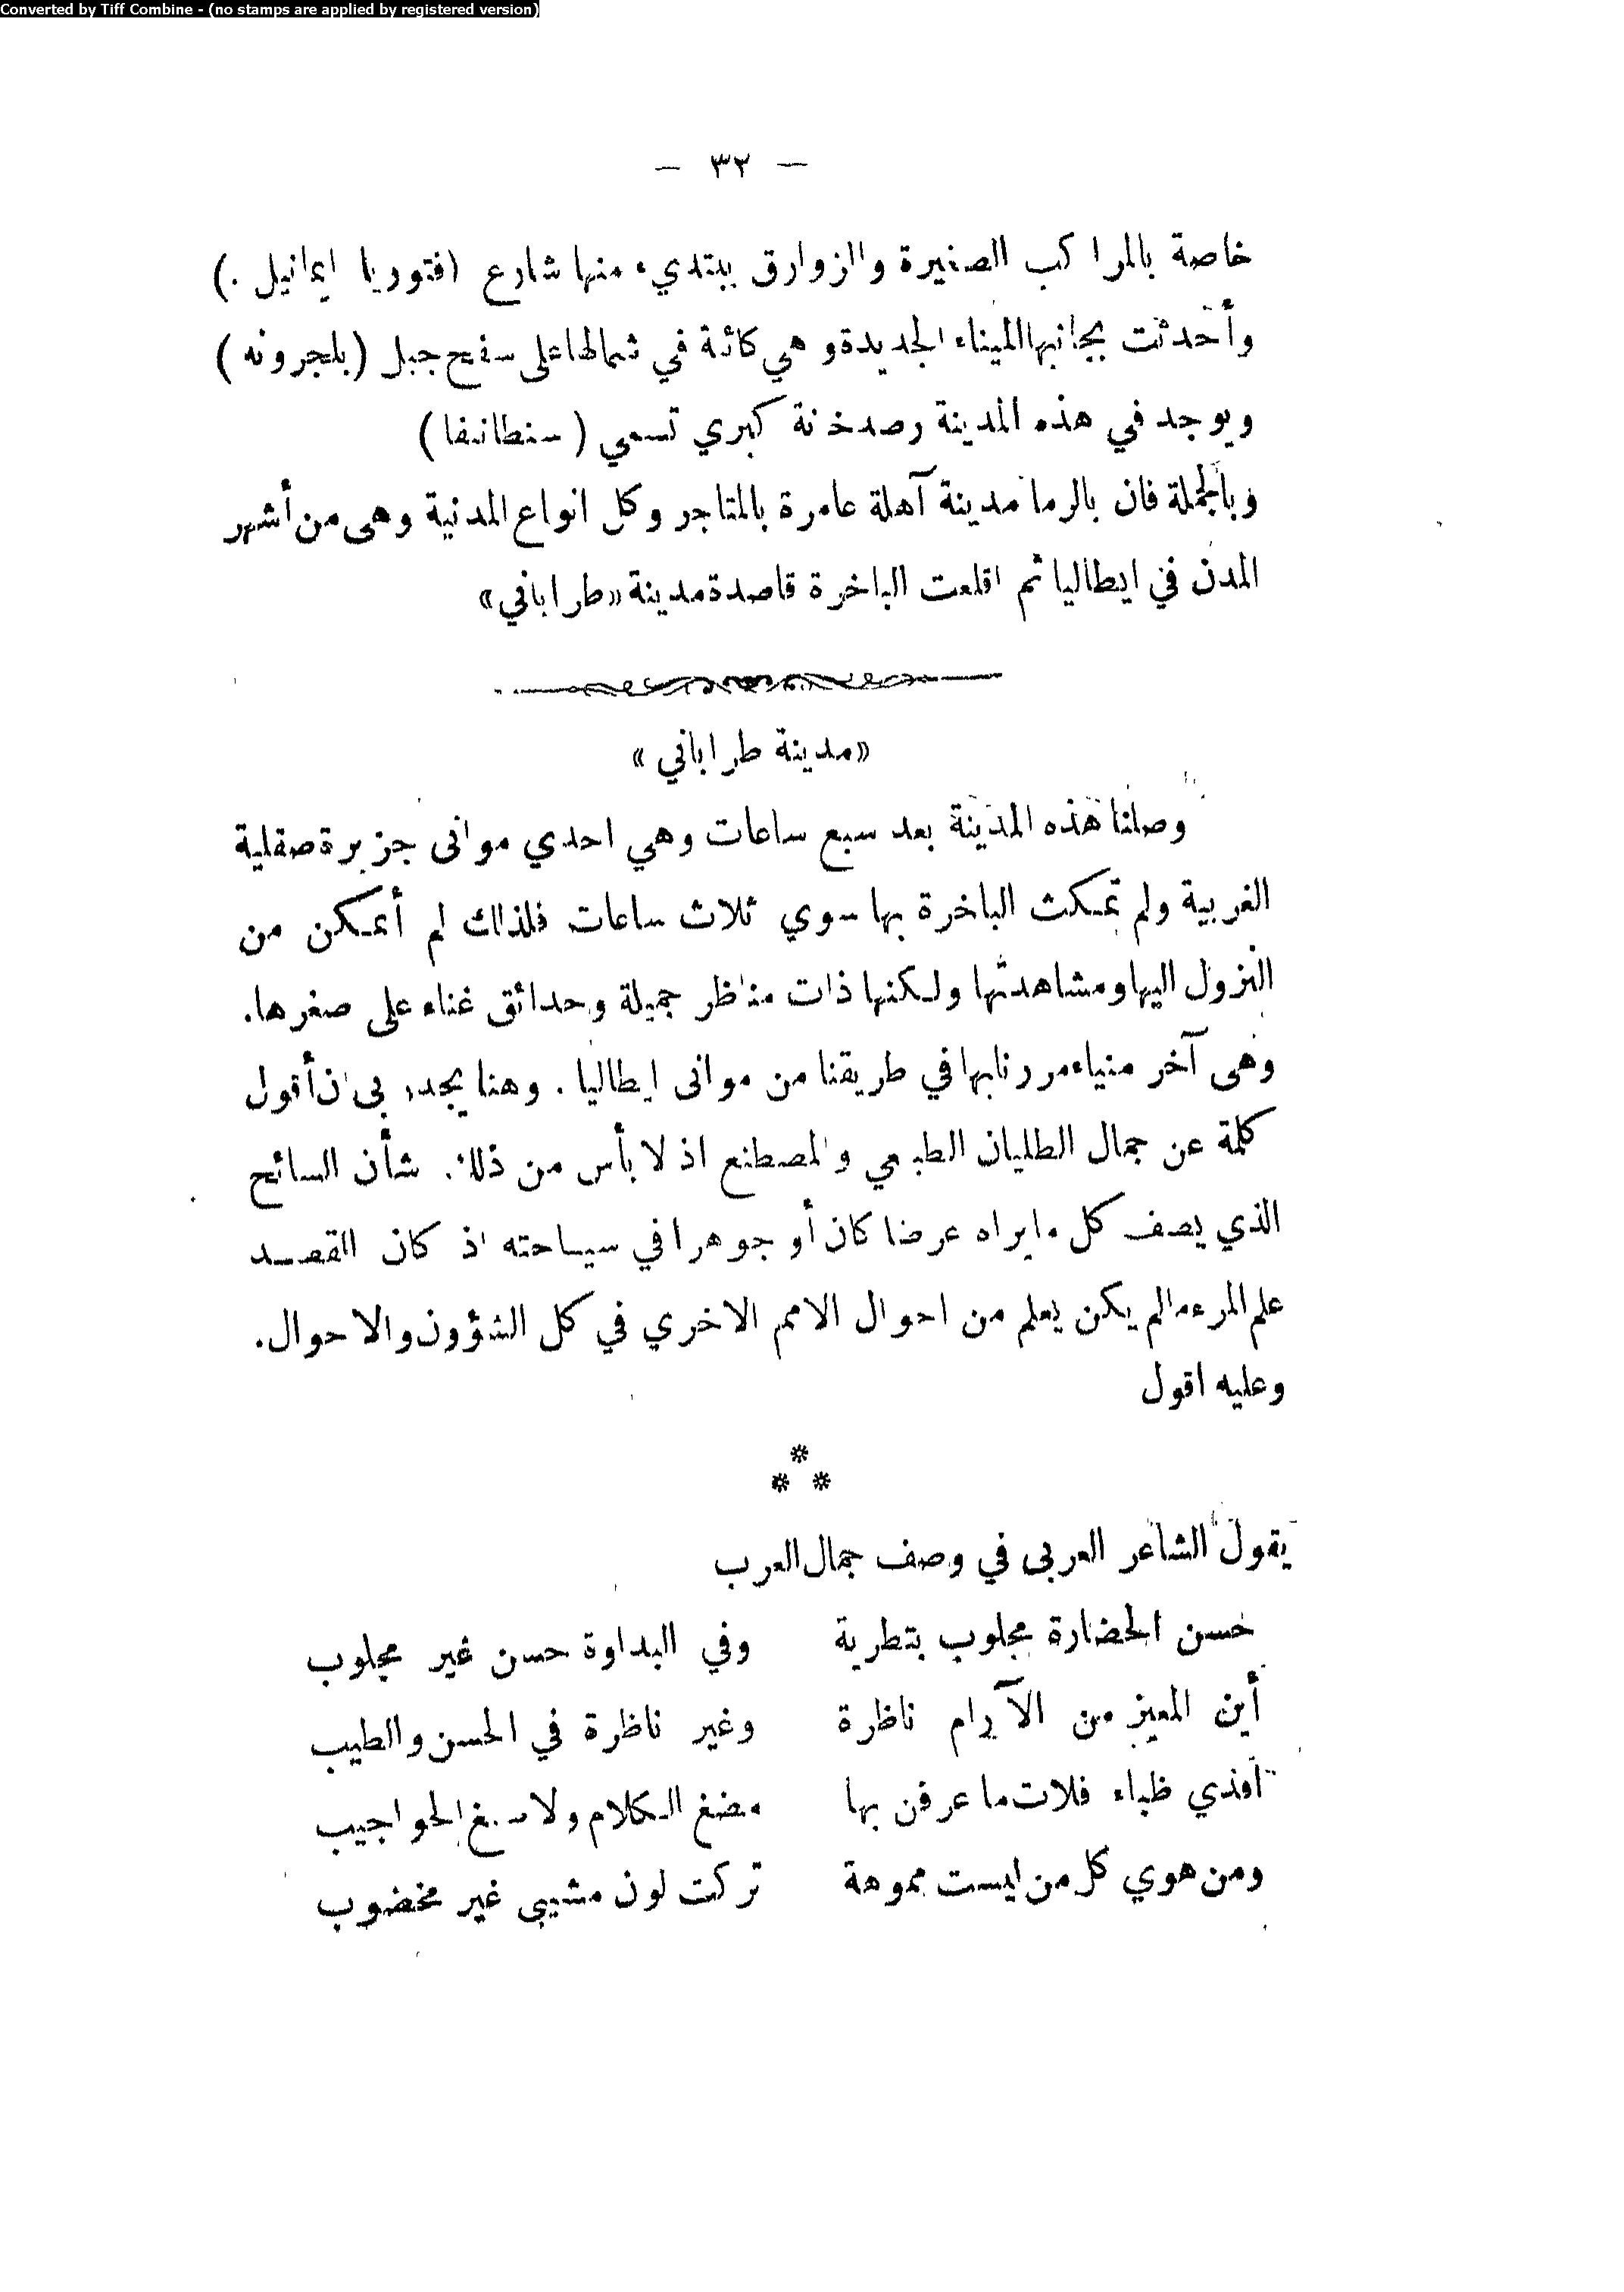 Converted by Tiff Combine - (no stamps are applied by registered version)
— ٣٢ —
خاصة بالمراكب الصغيرة والزوارق يبتديء منها شارع (فتوريا ايمانيل .)
وأحدثت بجانبها الميناء الجديدة وهي كائنة في شمالها على سفح جبل (بلجرونه)
ويوجد في هذه المدينة رصدخانة كبري تسمي (سنطانفا)
وبالجملة فان بالرما مدينة آهلة عامرة بالمتاجر وكل انواع المدنية وهى من أشهر
المدن في ايطاليا ثم اقلعت الباخرة قاصدة مدينة «طراباني»
«مدينة طراباني»
وصلنا هذه المدينة بعد سبع ساعات وهي احدي موانى جزيرة صقلية
الغربية ولم تمكث الباخرة بها سوي ثلاث ساعات فلذلك لم أتمكن من
النزول اليها ومشاهدتها ولكنها ذات مناظر جميلة وحدائق غناء على صغرها.
وهى آخر منياء مررنا بها في طريقنا من موانى ايطاليا . وهنا يجدر بى ان أقول
كلمة عن جمال الطليان الطبيعي والمصطنع اذ لا بأس من ذلك. شأن السائح
الذي يصف كل مايراه عرضا كان أو جوهرا في سياحته اذ كان القصد
علم المرء مالم يكن يعلم من احوال الامم الاخري في كل الشؤون والاحوال.
وعليه اقول
*
* *
يقول الشاعر العربى في وصف جمال العرب
حسن الحضارة مجلوب بتطرية وفي البداوة حسن غير مجلوب
أين المعيز من الآرام ناظرة وغير ناظرة في الحسن والطيب
افدي ظباء فلات ما عرفن بها مضغ الكلام ولا صبغ الحواجيب
ومن هوي كل من ليست مموهة تركت لون مشيبى غير مخضوب